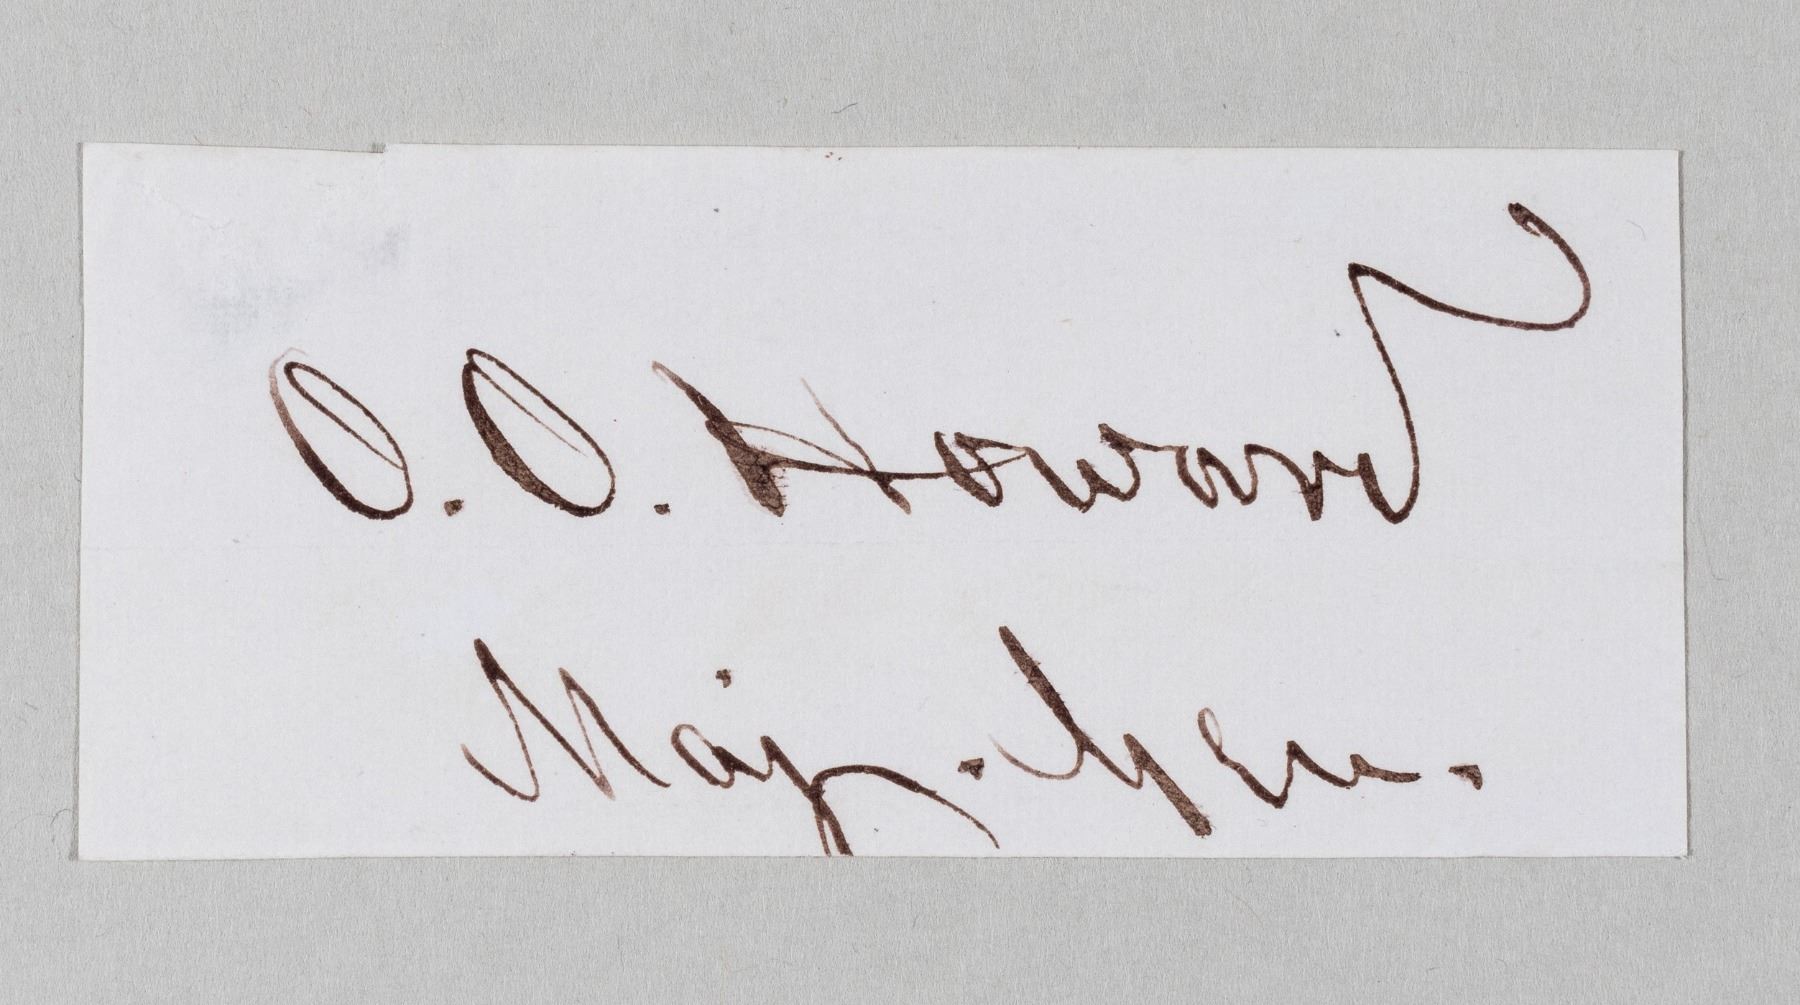 O. O. Howard
Maj. Gen.